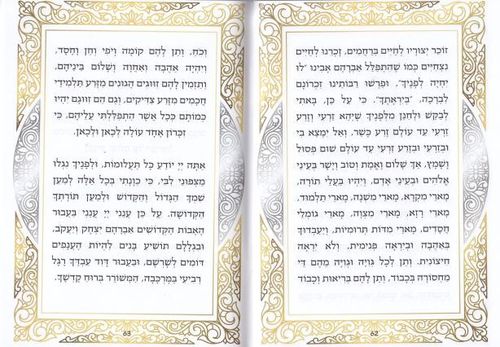 זוֹכֵר יְצוּרָיו לְחַיִּים בְּרַחֲמִים, זָכְרֵנוּ לְחַיִּים
נִצְחִיִּים כְּמוֹ שֶׁהִתְפַּלֵּל אַבְרָהָם אָבִינוּ 'לוּ
יִחְיֶה לְפָנֶיךָ', וּפֵרְשׁוּ רַבּוֹתֵינוּ זִכְרוֹנָם
לִבְרָכָה, 'בְּיִרְאָתֶךָ'. כִּי עַל כֵּן, בָּאתִי
לְבַקֵּשׁ וּלְחַנֵּן מִלְּפָנֶיךָ שֶׁיְּהֵא זַרְעִי וְזֶרַע
זַרְעִי עַד עוֹלָם זֶרַע כָּשֵׁר, וְאַל יִמָּצֵא בִּי
וּבְזַרְעִי וּבְזֶרַע זַרְעִי עַד עוֹלָם שׁוּם פְּסוּל
וָשֶׁמֶץ, אַךְ שָׁלוֹם וֶאֱמֶת וְטוֹב וְיָשָׁר בְּעֵינֵי
אֱלֹהִים וּבְעֵינֵי אָדָם, וְיִהְיוּ בַּעֲלֵי תוֹרָה,
מָארֵי מִקְרָא, מָארֵי מִשְׁנָה, מָארֵי תַּלְמוּד,
מָארֵי רָזָא, מָארֵי מִצְוָה, מָארֵי גּוֹמְלֵי
חֲסָדִים, מָארֵי מִדּוֹת תְּרוּמִיּוֹת, וְיַעַבְדוּךָ
בְּאַהֲבָה וּבְיִרְאָה פְּנִימִית, וְלֹא יִרְאָה
חִיצוֹנִית. וְתֵן לְכָל גְּוִיָּה וּגְוִיָּה מֵהֶם דֵּי
מַחְסוֹרָהּ בְּכָבוֹד, וְתֵן לָהֶם בְּרִיאוּת וְכָבוֹד
62
וָכֹחַ, וְתֵן לָהֶם קוֹמָה וְיֹפִי וְחֵן וָחֶסֶד,
וְיִהְיֶה אַהֲבָה וְאַחֲוָה וְשָׁלוֹם בֵּינֵיהֶם,
וְתַזְמִין לָהֶם זִוּוּגִים הֲגוּנִים מִזֶּרַע תַּלְמִידֵי
חֲכָמִים מִזֶּרַע צַדִּיקִים, וְגַם הֵם זִוּוּגָם יִהְיוּ
כְּמוֹתָם כְּכָל אֲשֶׁר הִתְפַּלַּלְתִּי עֲלֵיהֶם, כִּי
זִכָּרוֹן אֶחָד עוֹלֶה לְכָאן וּלְכָאן.
אַתָּה יְיָ יוֹדֵעַ כָּל תַּעֲלוּמוֹת, וּלְפָנֶיךָ נִגְלוּ
מַצְפּוּנֵי לִבִּי, כִּי כַוָּנָתִי בְּכָל אֵלֶּה לְמַעַן
שִׁמְךָ הַגָּדוֹל וְהַקָּדוֹשׁ וּלְמַעַן תּוֹרָתְךָ
הַקְּדוֹשָׁה. עַל כֵּן עֲנֵנִי יְיָ עֲנֵנִי בַּעֲבוּר
הָאָבוֹת הַקְּדוֹשִׁים אַבְרָהָם יִצְחָק וְיַעֲקֹב,
וּבִגְלָלָם תּוֹשִׁיעַ בָּנִים לִהְיוֹת הָעֲנָפִים
דּוֹמִים לְשָׁרְשָׁם, וּבַעֲבוּר דָּוִד עַבְדְּךָ רֶגֶל
רְבִיעִי בַּמֶּרְכָּבָה, הַמְשׁוֹרֵר בְּרוּחַ קָדְשֶׁךָ.
63